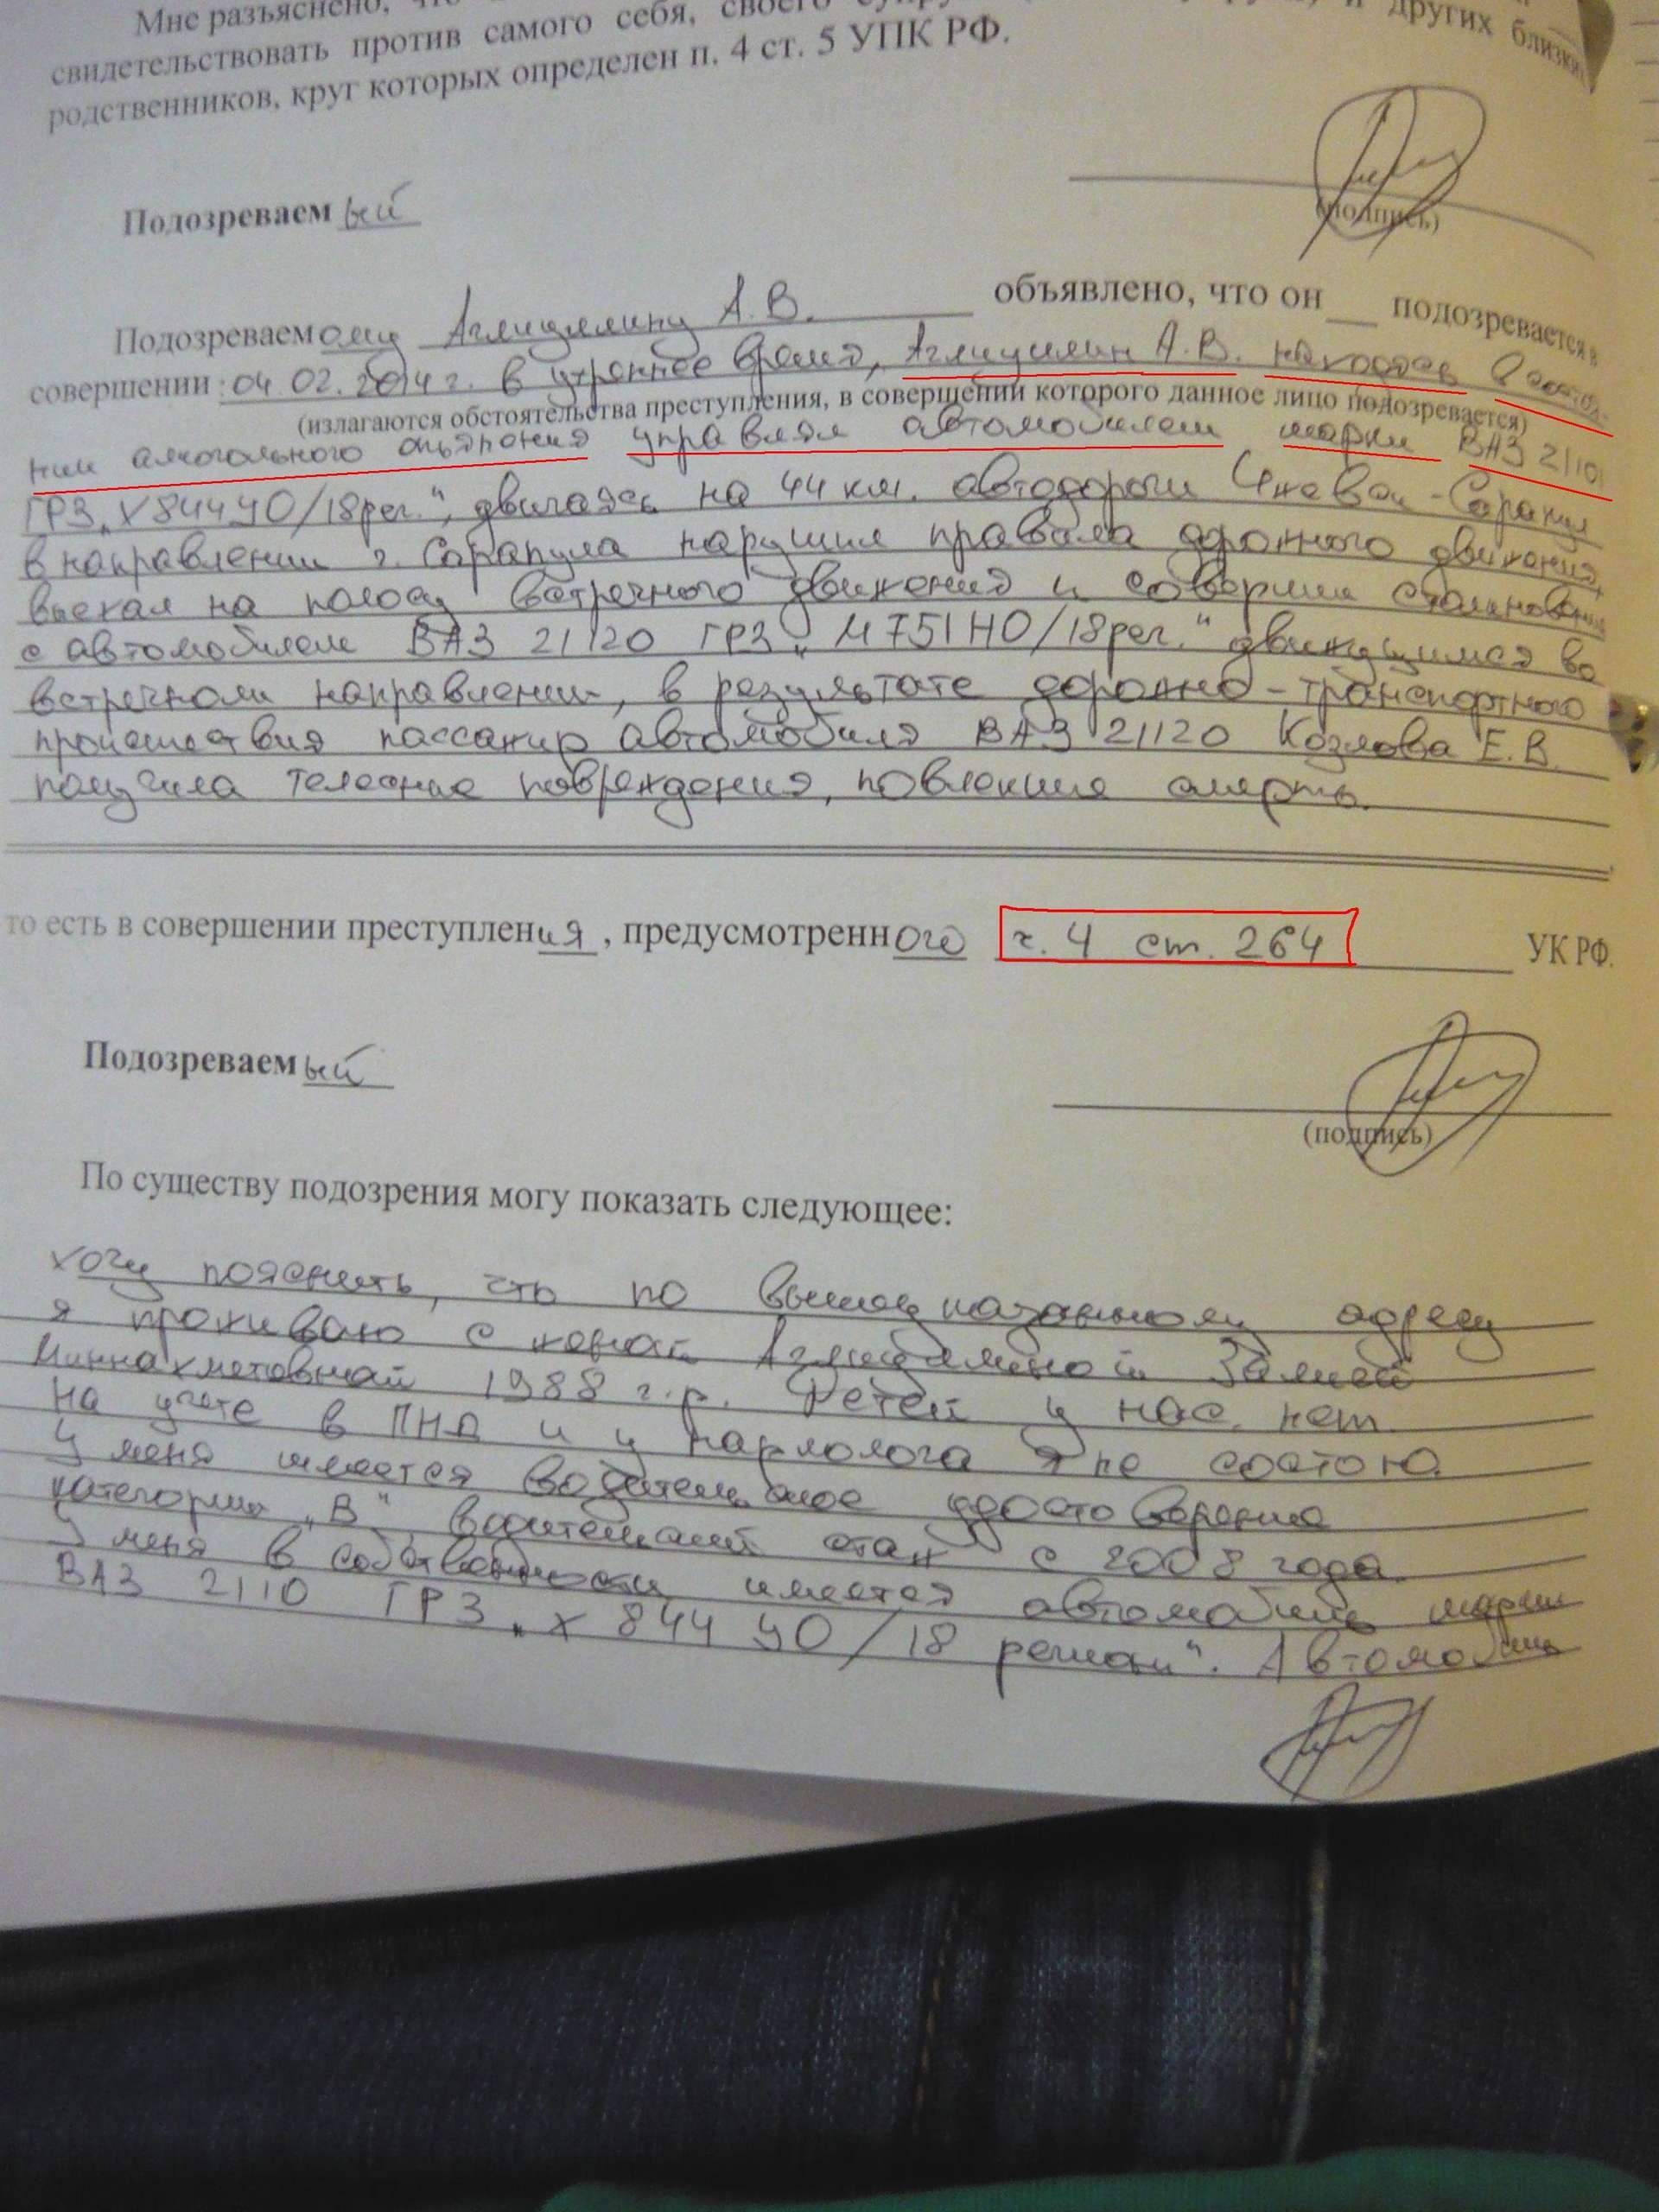 Мне разъяснено,
свидетельствовать против самого себя, своего других близких
родственников, круг которых определен п. 4 ст. 5 УПК РФ.
(подпись)
Подозреваем ый
Подозреваемому Аглиуллину А.В. объявлено, что он подозревается в
совершении: 04.02.2014 г. в утреннее время, Аглиуллин А.В. находясь в состоя-
(излагаются обстоятельства преступления, в совершении которого данное лицо подозревается)
нии алкогольного опьянения управлял автомобилем марки ВАЗ 2110
ГРЗ „Х844УО/18рег.", двигаясь на 44 км. автодороги Ижевск - Сарапул
в направлении г. Сарапула нарушил правила дорожного движения,
выехал на полосу встречного движения и совершил столкновение
с автомобилем ВАЗ 21120 ГРЗ „М751НО/18рег." движущимся во
встречном направлении, в результате дорожно-транспортного
происшествия пассажир автомобиля ВАЗ 21120 Козлова Е.В.
получила телесные повреждения, повлекшие смерть.
то есть в совершении преступления, предусмотренного ч. 4 ст. 264 УК РФ.
Подозреваемый
(подпись)
По существу подозрения могу показать следующее:
хочу пояснить, что по вышеуказанному адресу
я проживаю с женой Аглиуллиной
Миннахметовной 1988 г.р. Детей у нас нет.
На учете в ПНД и у нарколога я не состою.
У меня имеется водительское удостоверение
категории „В", водительский стаж с 2008 года.
У меня в собственности имеется автомобиль марки
ВАЗ 2110 ГРЗ „Х 844 УО/18 регион". Автомобиль